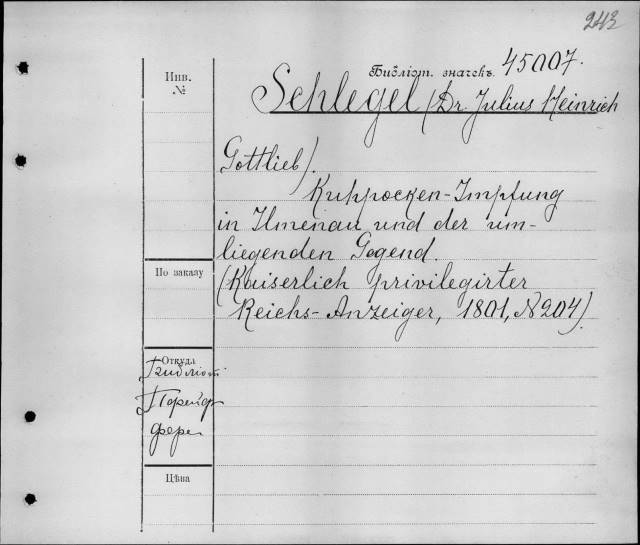 243
Инв.
№
Библіот. значекъ 45007.
Schlegel (Dr. Julius Heinrich
Gottlieb).
Kuhpocken-Impfung
in Ilmenau und der um-
liegenden Gegend.
По заказу
(Kaiserlich privilegirter
Reichs-Anzeiger, 1801, N 204).
Откуда
Библіот
Цѣна